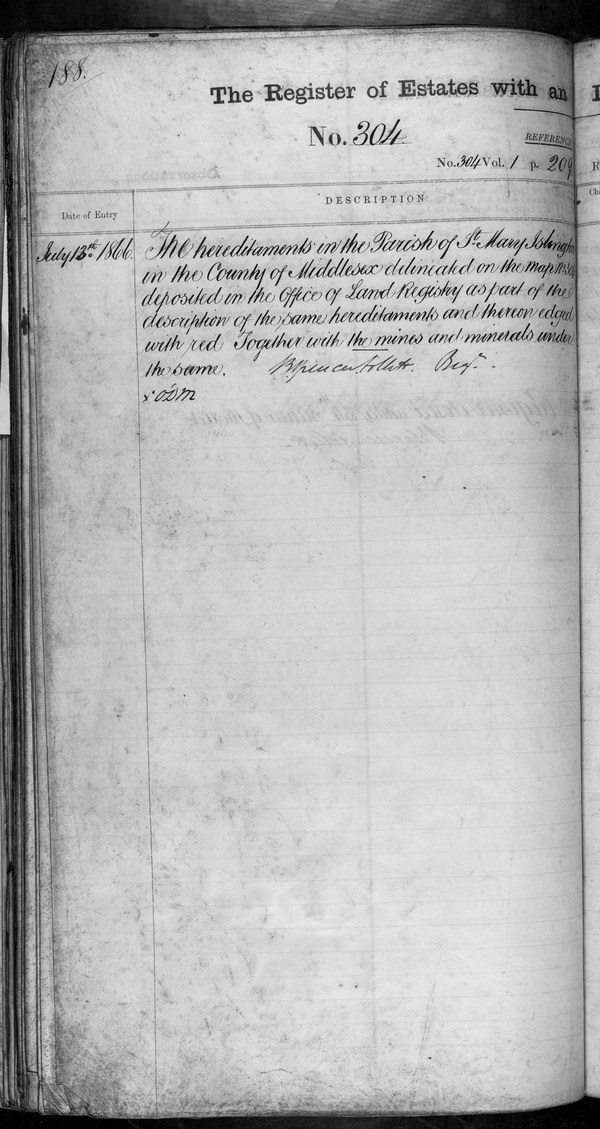 188.
The Register of Estates with an
No. 304
REFERENCE
No. 304 Vol. 1 p. 209
DESCRIPTION
Date of Entry
July 13th 1866.
The hereditaments in the Parish of St. Mary Islington
in the County of Middlesex delineated on the map No.
deposited in the Office of Land Registry as part of the
description of the same hereditaments and thereon edged
with red Together with the mines and minerals under
the same. Brent Spencer Follett. Regr.